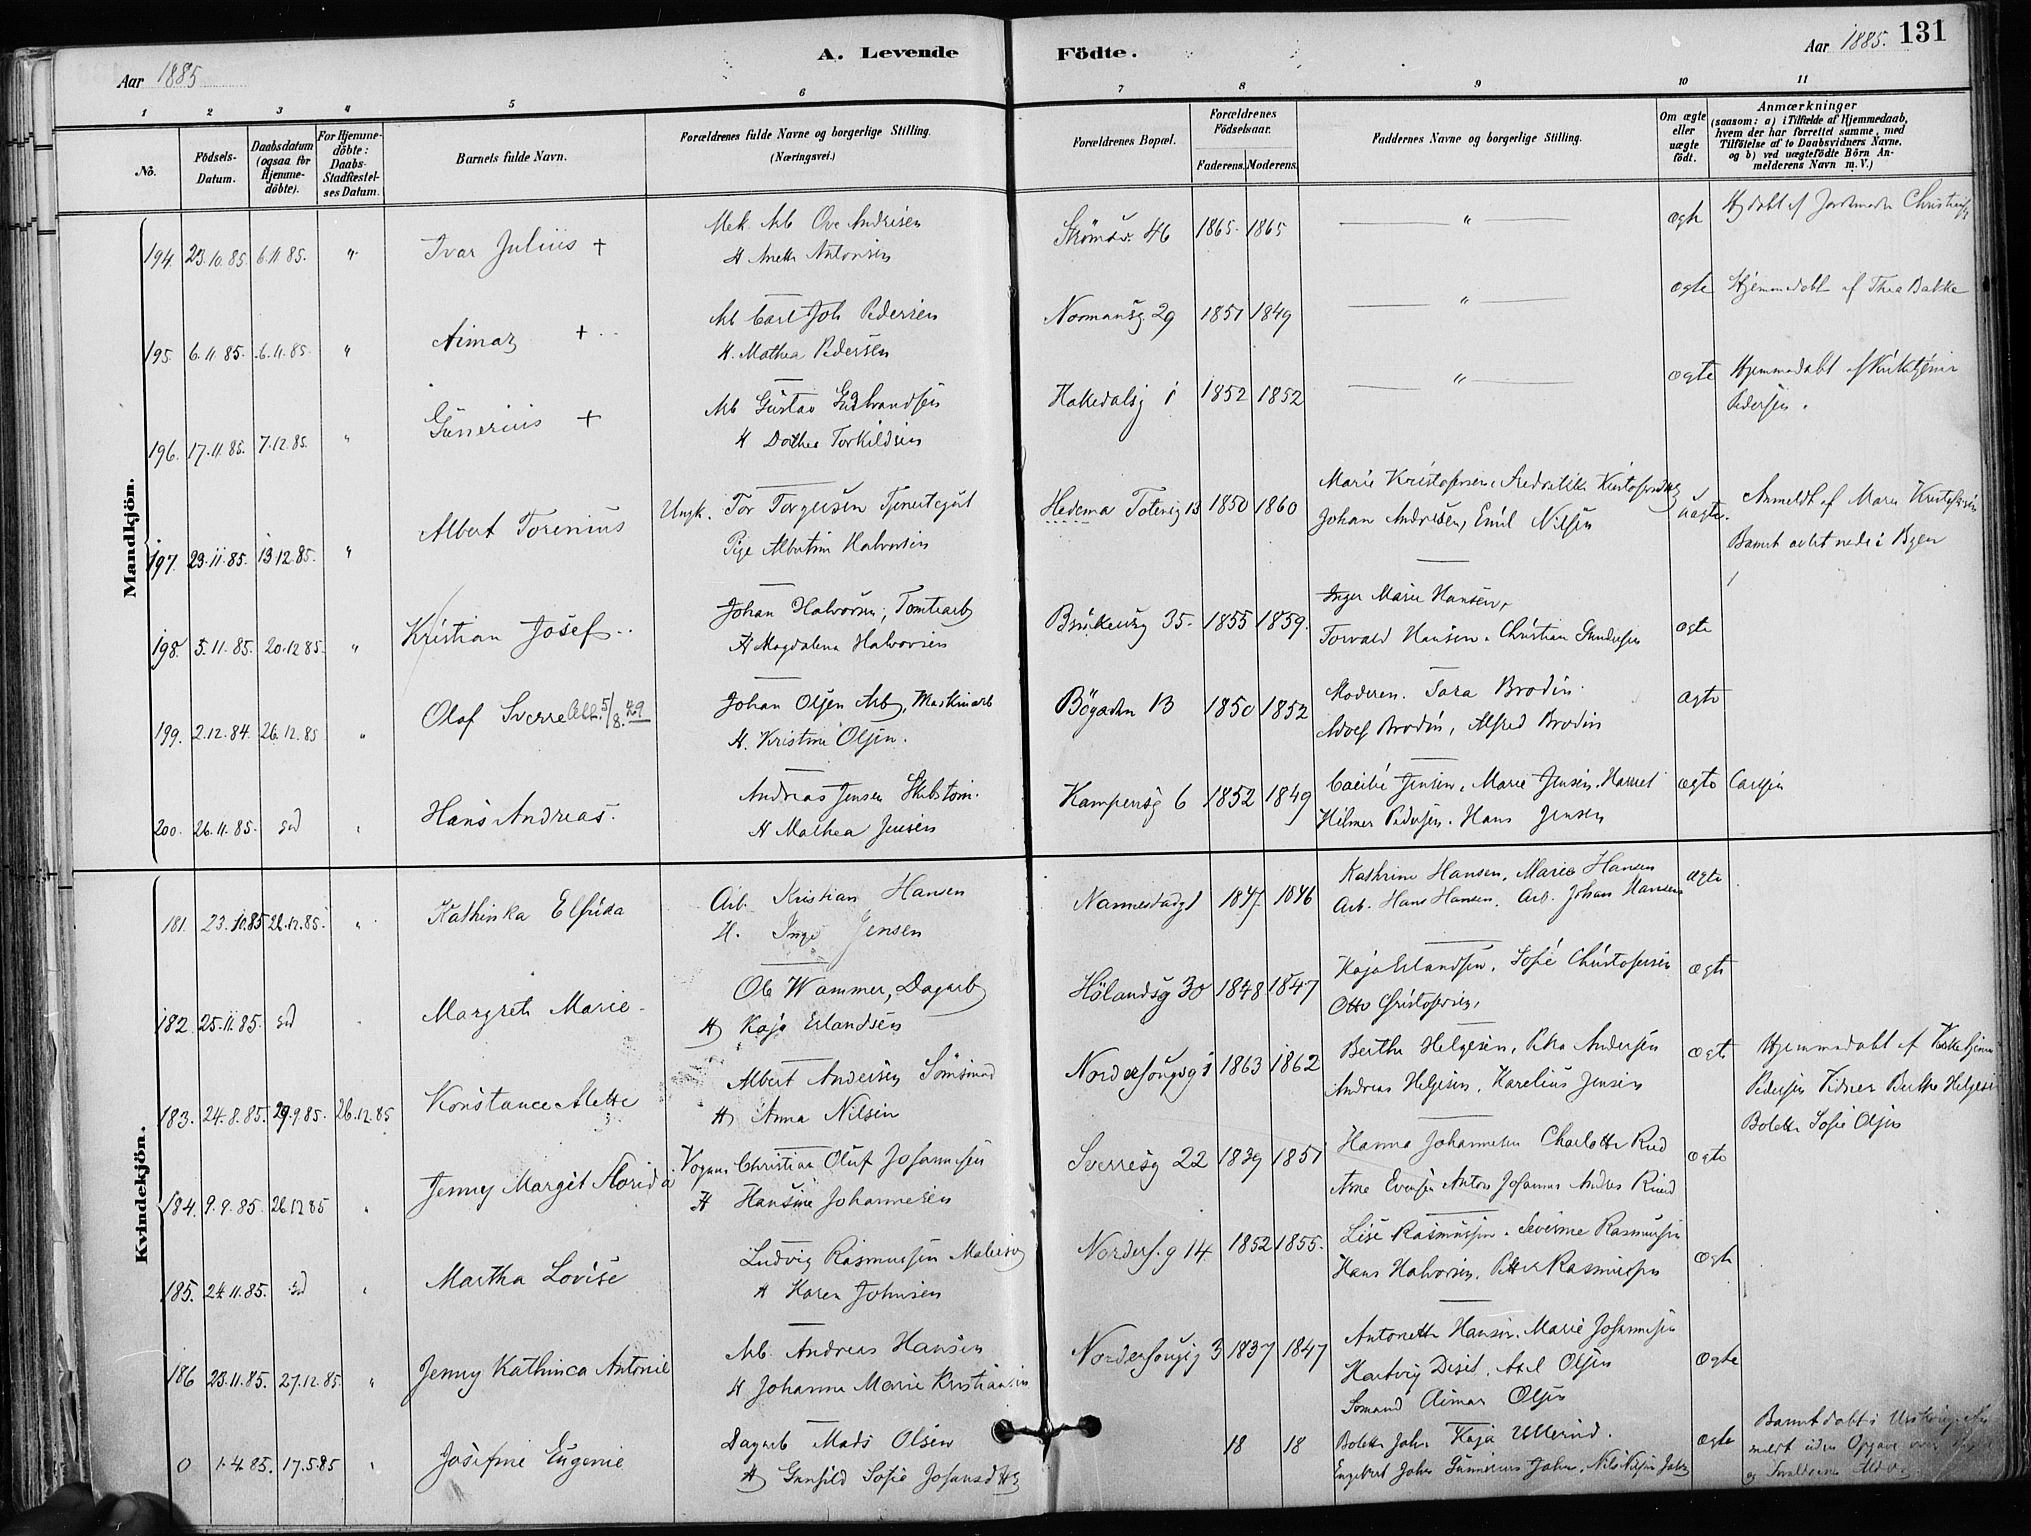 Aar 1885
A. Levende Födte.
Aar 1885. 131
1 2 3 4 5 6 7 8 9 10 11
No.
Födsels-Datum.
Daabsdatum (ogsaa for Hjemme-döbte).
For Hjemme-döbte: Daabs-Stadfæstel-ses Datum.
Barnets fulde Navn.
Forældrenes fulde Navne og borgerlige Stilling.
(Næringsvei.)
Forældrenes Bopæl.
Forældrenes Födselsaar.
Faderens. Moderens.
Faddernes Navne og borgerlige Stilling.
Om ægte eller uægte födt.
Anmærkninger
(saasom: a) i Tilfælde af Hjemmedaab, hvem der har forrettet samme, med Tilföielse af to Daabsvidners Navne, og b) ved uægtefödte Börn An-melderens Navn m. V.)
Mandkjön.
194. 23.10.85. 6.11.85. " Ivar Julius +
Mek. Arb Ove Andrisen
H Anette Antonsen
46 1865. 1865 " ægte
195. 6.11.85. 6.11.85. " Aimar +
Arb Carl Joh Pedersen
H. Mathea Pedersen
Normansg. 29 1851 1849 " ægte Hjemmedøbt af Thea Bakke
196. 17.11.85. 7.12.85. " Gunerius +
Arb Gustav
H Dorthea Torkildsen
Hakedalsg 1 1852 1852 " ægte Hjemmedøbt af Kirketjener
Pedersen.
197. 23.11.85. 13.12.85. " Albert Torenius
Ungk. Tor Torgersen Tjenestegut
Pige Albertine Halvorsen
Hedema Totensg 13 1850 1860
Marie Kristofersen, Fredrikke
Johan Andresen, Emil Nilsen
uægte. Anmeldt af Maren Kristofersen
Barnet avlet nede i Byen
198. 5.11.85. 20.12.85. " Kristian Josef
Johan Halvorsen, Tomtearb
H Magdalena Halvorsen
35. 1855 1859.
Inger Marie Hansen,
Torvald Hansen. Christian Gundersen
ægte
199. 2.12.84. 26.12.85 " Olaf Sverre 5/8.29
Johan Olsen Arb, Maskinarb
H. Kristine Olsen.
Bögaden 13 1850 1852
Moderen. Sara Brodin.
Adolf Brodin, Alfred Brodin
ægte
200. 26.11.85. Hans Andreas.
Andreas Jensen Skibstøm.
H Mathea Jensen
Kampensg 6 1852 1849
Cæcilie Jensen, Marie Jensen.
Hilmer Pedersen. Hans Jensen
ægte
Kvindekjön.
181. 23.10.85 26.12.85. " Kathinka Elfrida
Arb. Kristian Hansen
H. Inge Jensen
Nannestadg 1 1847 1846
Kathrine Hansen, Marie Hansen
Arb. Hans Hansen, Arb. Johan Hansen
ægte
182. 25.11.85. Margrete Marie
Ole Wammer, Dagarb
H Kaja Erlandsen
Hölandsg 30 1848 1847
Kaja Erlandsen, Sofie Christofersen
Otto Christofersen,
ægte
183. 24.8.85. 29.9.85. 26.12.85 Konstance Alette
Albert Andersen Sömand
H Anna Nilsen
1863 1862
Berthe Helgesen, Petra Andersen
Andreas Helgesen, Karelius Jensen
ægte Hjemmedøbt af
Pedersen Vidner Berthe Helgesen
Bolette Sofie Olsen
184. 9.9.85. 26.12.85 Jenny Margit Florida
Vognm. Christian Oluf Johannesen
H Hansine Johannesen
Sverresg 22 1839 1851
Hanna Johannesen Charlotte Rud
Arne Evensen Anton Johannes Anders Ruud
ægte
185. 24.11.85. Martha Lovise
Ludvig Rasmussen Malersv
H Karen Johnsen
Norders.g 14 1852 1855.
Lise Rasmussen. Severine Rasmussen
Hans Halvorsen, Petter Rasmussen
ægte
186 23.11.85. 27.12.85. " Jenny Kathinca Antonie
Arb. Andreas Hansen
H Johanne Marie Kristiansen
3 1837 1847
Antonette Hansen. Marie Johannesen
Hartvig Diset, Axel Olsen
Sømand Aimar Olsen
ægte
0 1.4.85. 17.5.85 Josefine Eugenie
Dagarb Mads Olsen
H Gunhild Sofie
18 18
Bolette Johns Kaja Ullerud.
Engebret Johns Gunnerius Johns. Nils Nilsen
ægte Barnet døbt i